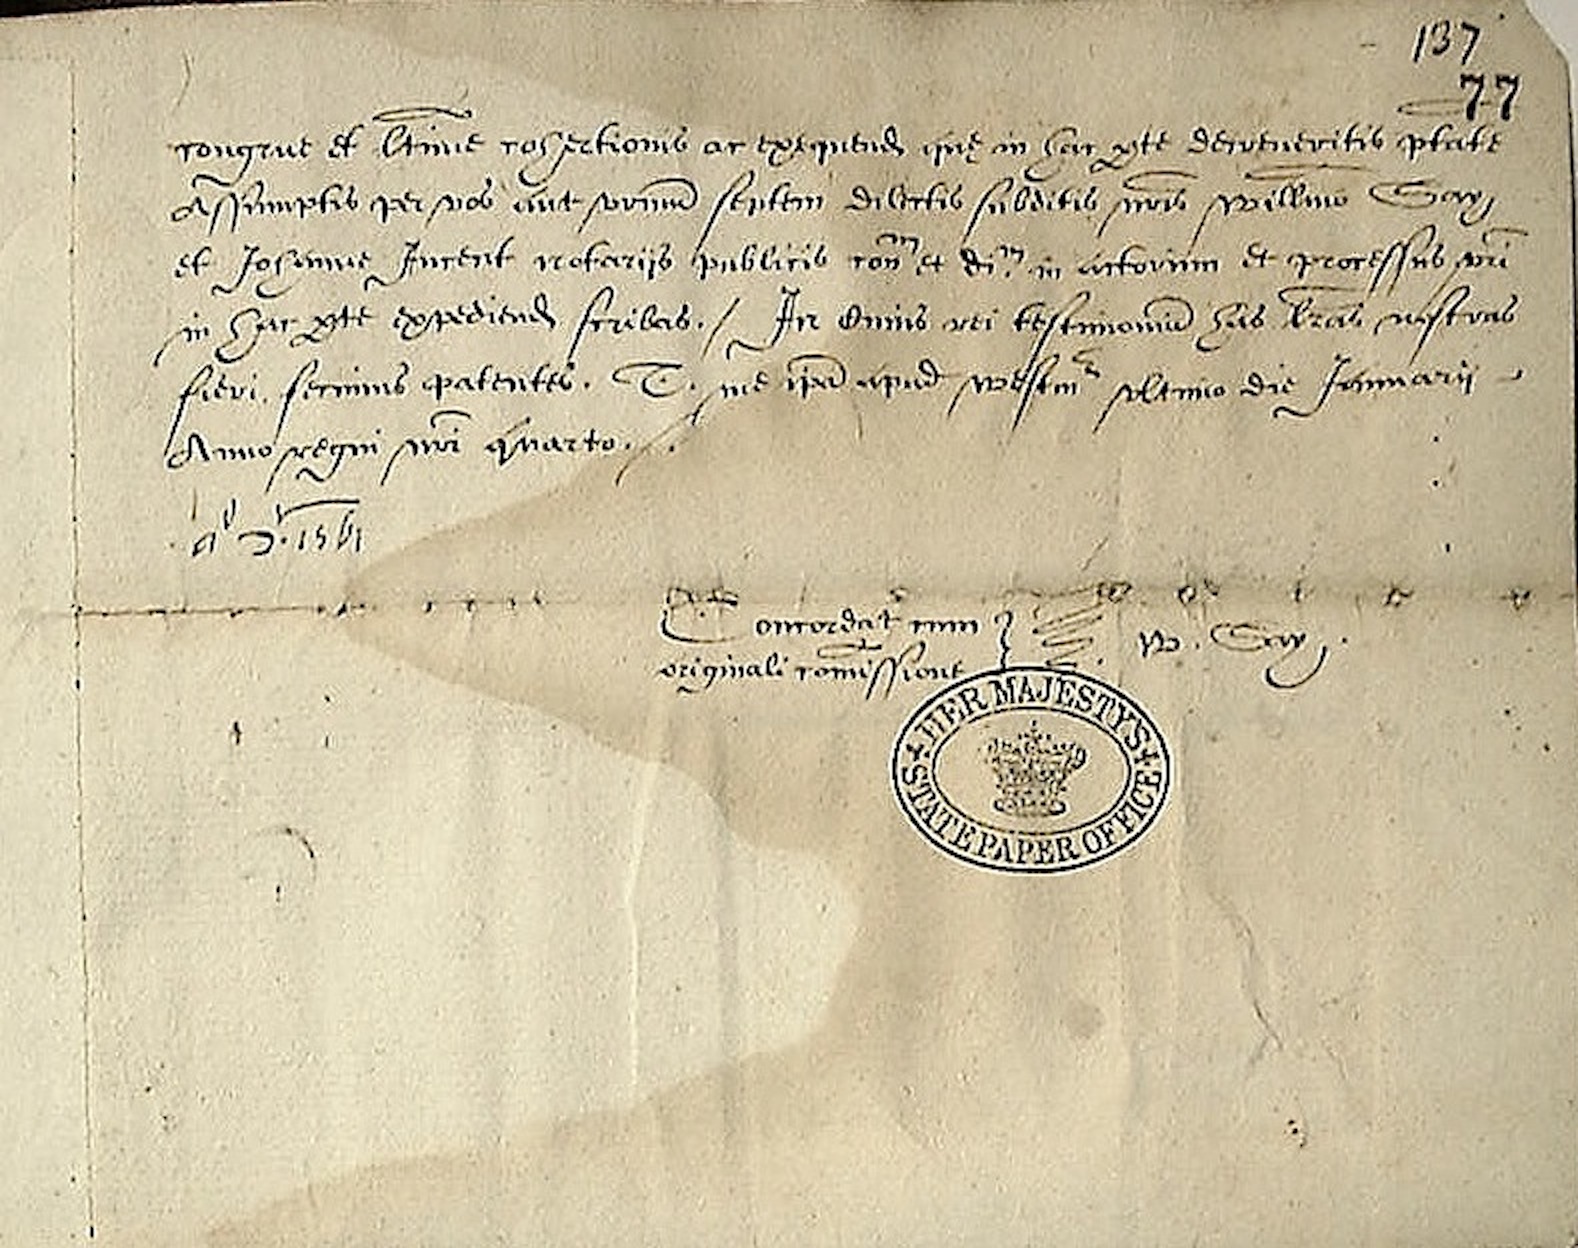 137
77
congrue et ltime cohertionis ac exequend que in hac pte decreveritis ptate
Assumptis per vos aut vrum septem dilectis subditis nris Willmo Say
et Johanne Incent notariis publicis con et di in actorum et processus vri
in hac pte expediend scribas. / In Cuius rei testimoniu has lras nostras
fieri fecimus patentes. T. me ipa apud westm vltimo die Januarii
Anno regni nri quarto.
a d. 1561
Concordat cum
originali comissione
W. Say.
HER MAJESTY'S STATE PAPER OFFICE